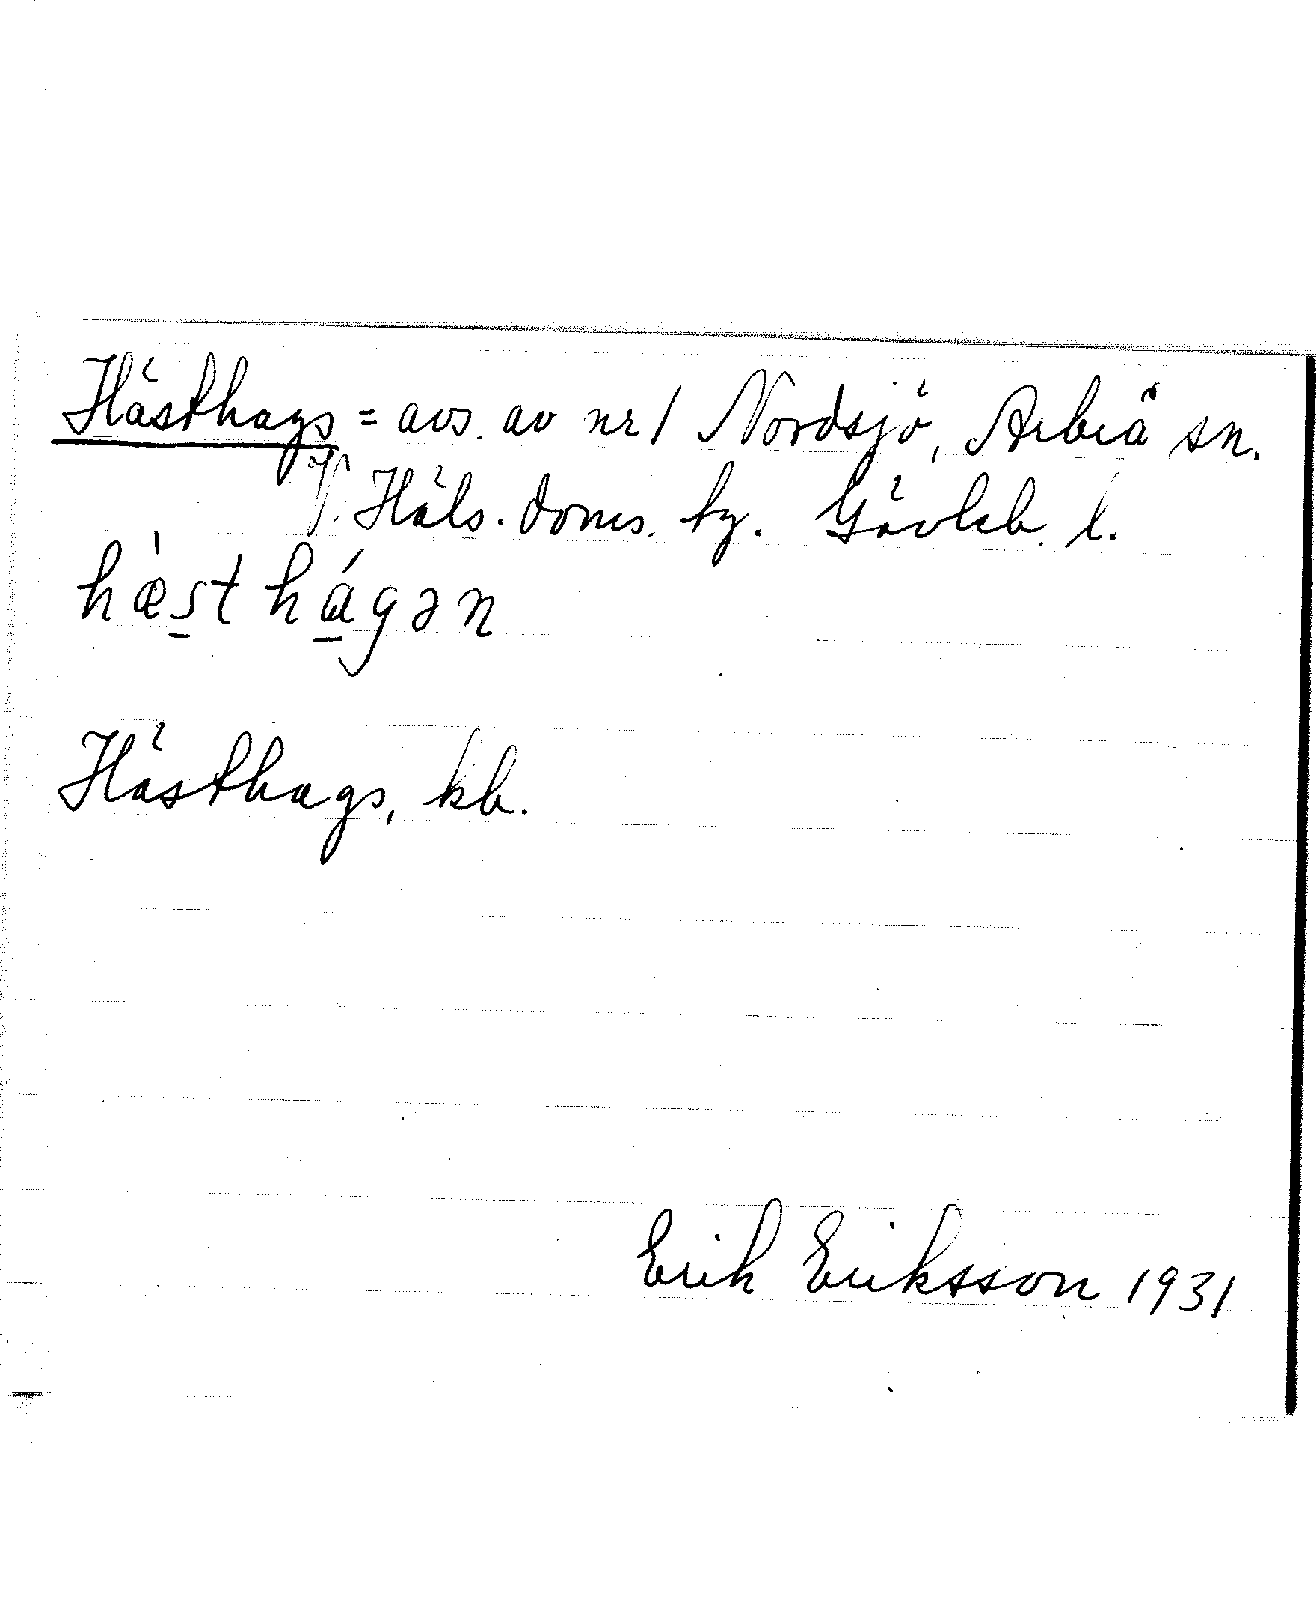 Hästhags = avs. av nr 1 Nordsjö, Arbrå sn.
V. Häls. doms. hg. Gävleb. l.
hæ̀sthágən
Hästhags, kb.
Erik Eriksson 1931